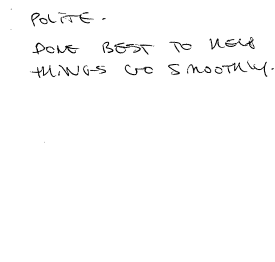 POLITE.
DONE BEST TO HELP
THINGS GO SMOOTHLY.